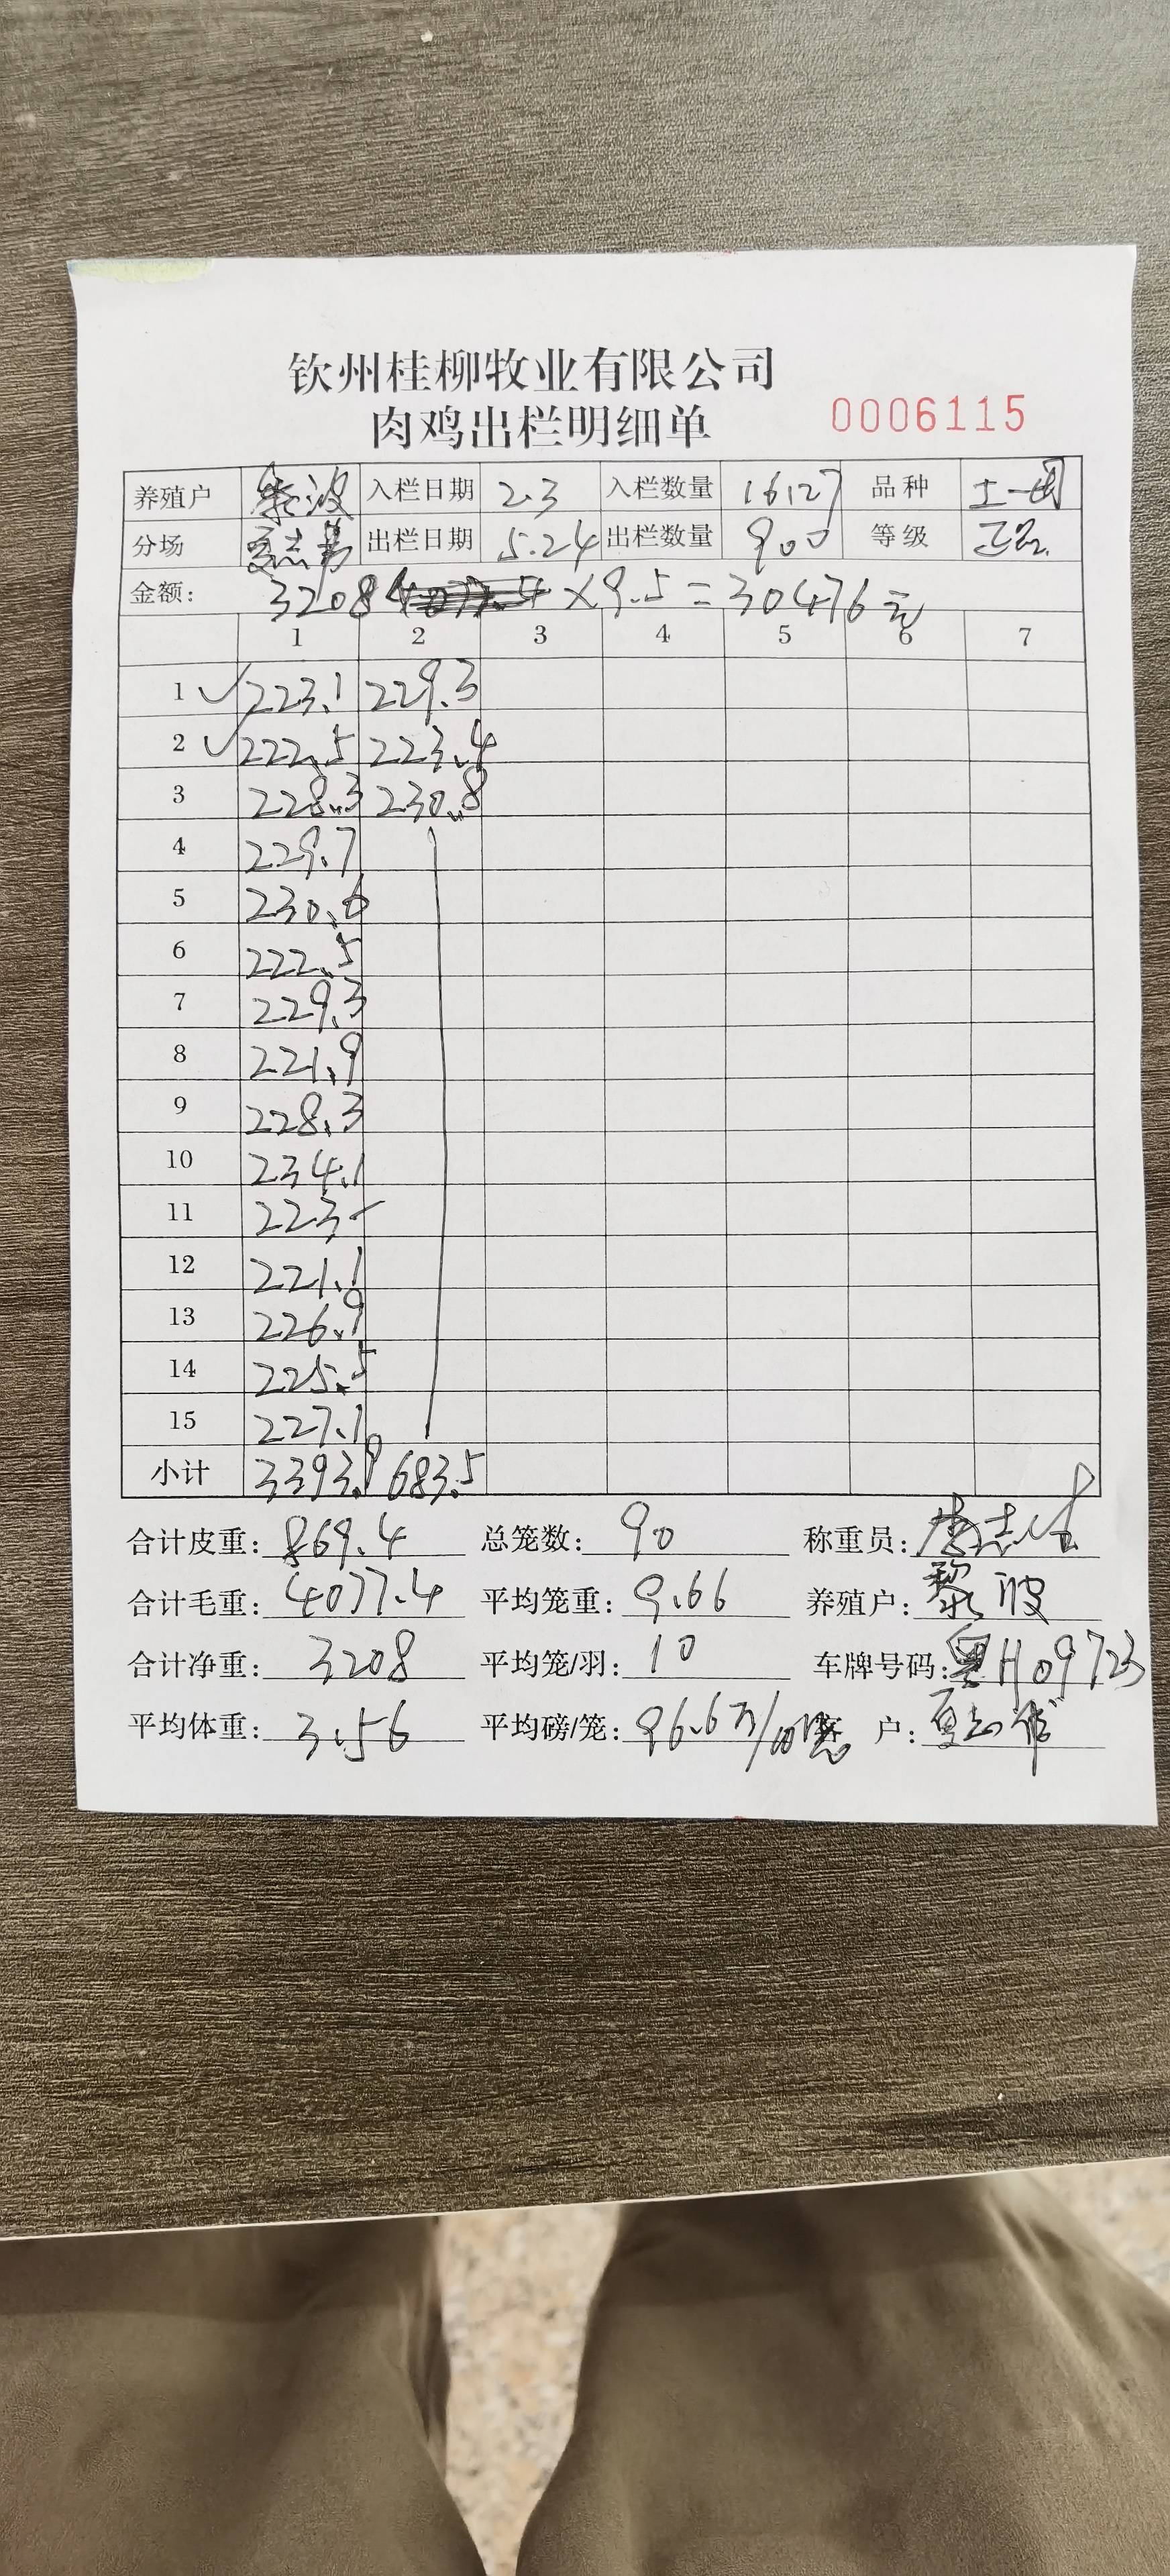 钦州桂柳牧业有限公司
肉鸡出栏明细单 0006115
养殖户 黎波 入栏日期 2.3 入栏数量 16127 品种 土一
分场 出栏日期 5.24 出栏数量 900 等级 正品
金额: 3208 × 9.5 = 30476元
1 2 3 4 5 6 7
1 223.1 229.3
2 222.5 223.4
3 228.3 230.8
4 229.7
5 230.6
6 222.5
7 229.3
8 221.9
9 228.3
10 234.1
11 223-
12 221.1
13 226.9
14 225.5
15 227.1
小计 3393.9 683.5
合计皮重: 869.4 总笼数: 90 称重员:
合计毛重: 4077.4 平均笼重: 9.66 养殖户: 黎波
合计净重: 3208 平均笼/羽: 10 车牌号码: 粤H09723
平均体重: 3.56 平均磅/笼: 96.6 户: